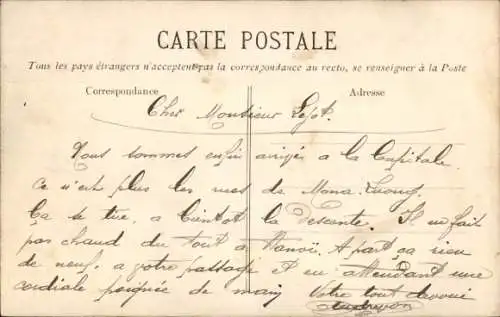 CARTE POSTALE
Tous les pays étrangers n'acceptent pas la correspondance au recto, se renseigner à la Poste
Correspondance
Adresse
Cher Monsieur
Nous sommes enfin arrivés a la Capitale
ce n'est plus les rues de
Ça se tire, a bientot la descente. Il ne fait
pas chaud du tout à Hanoï. A part ça rien
de neuf. a votre passage et en attendant une
cordiale poignée de main Votre tout devoué